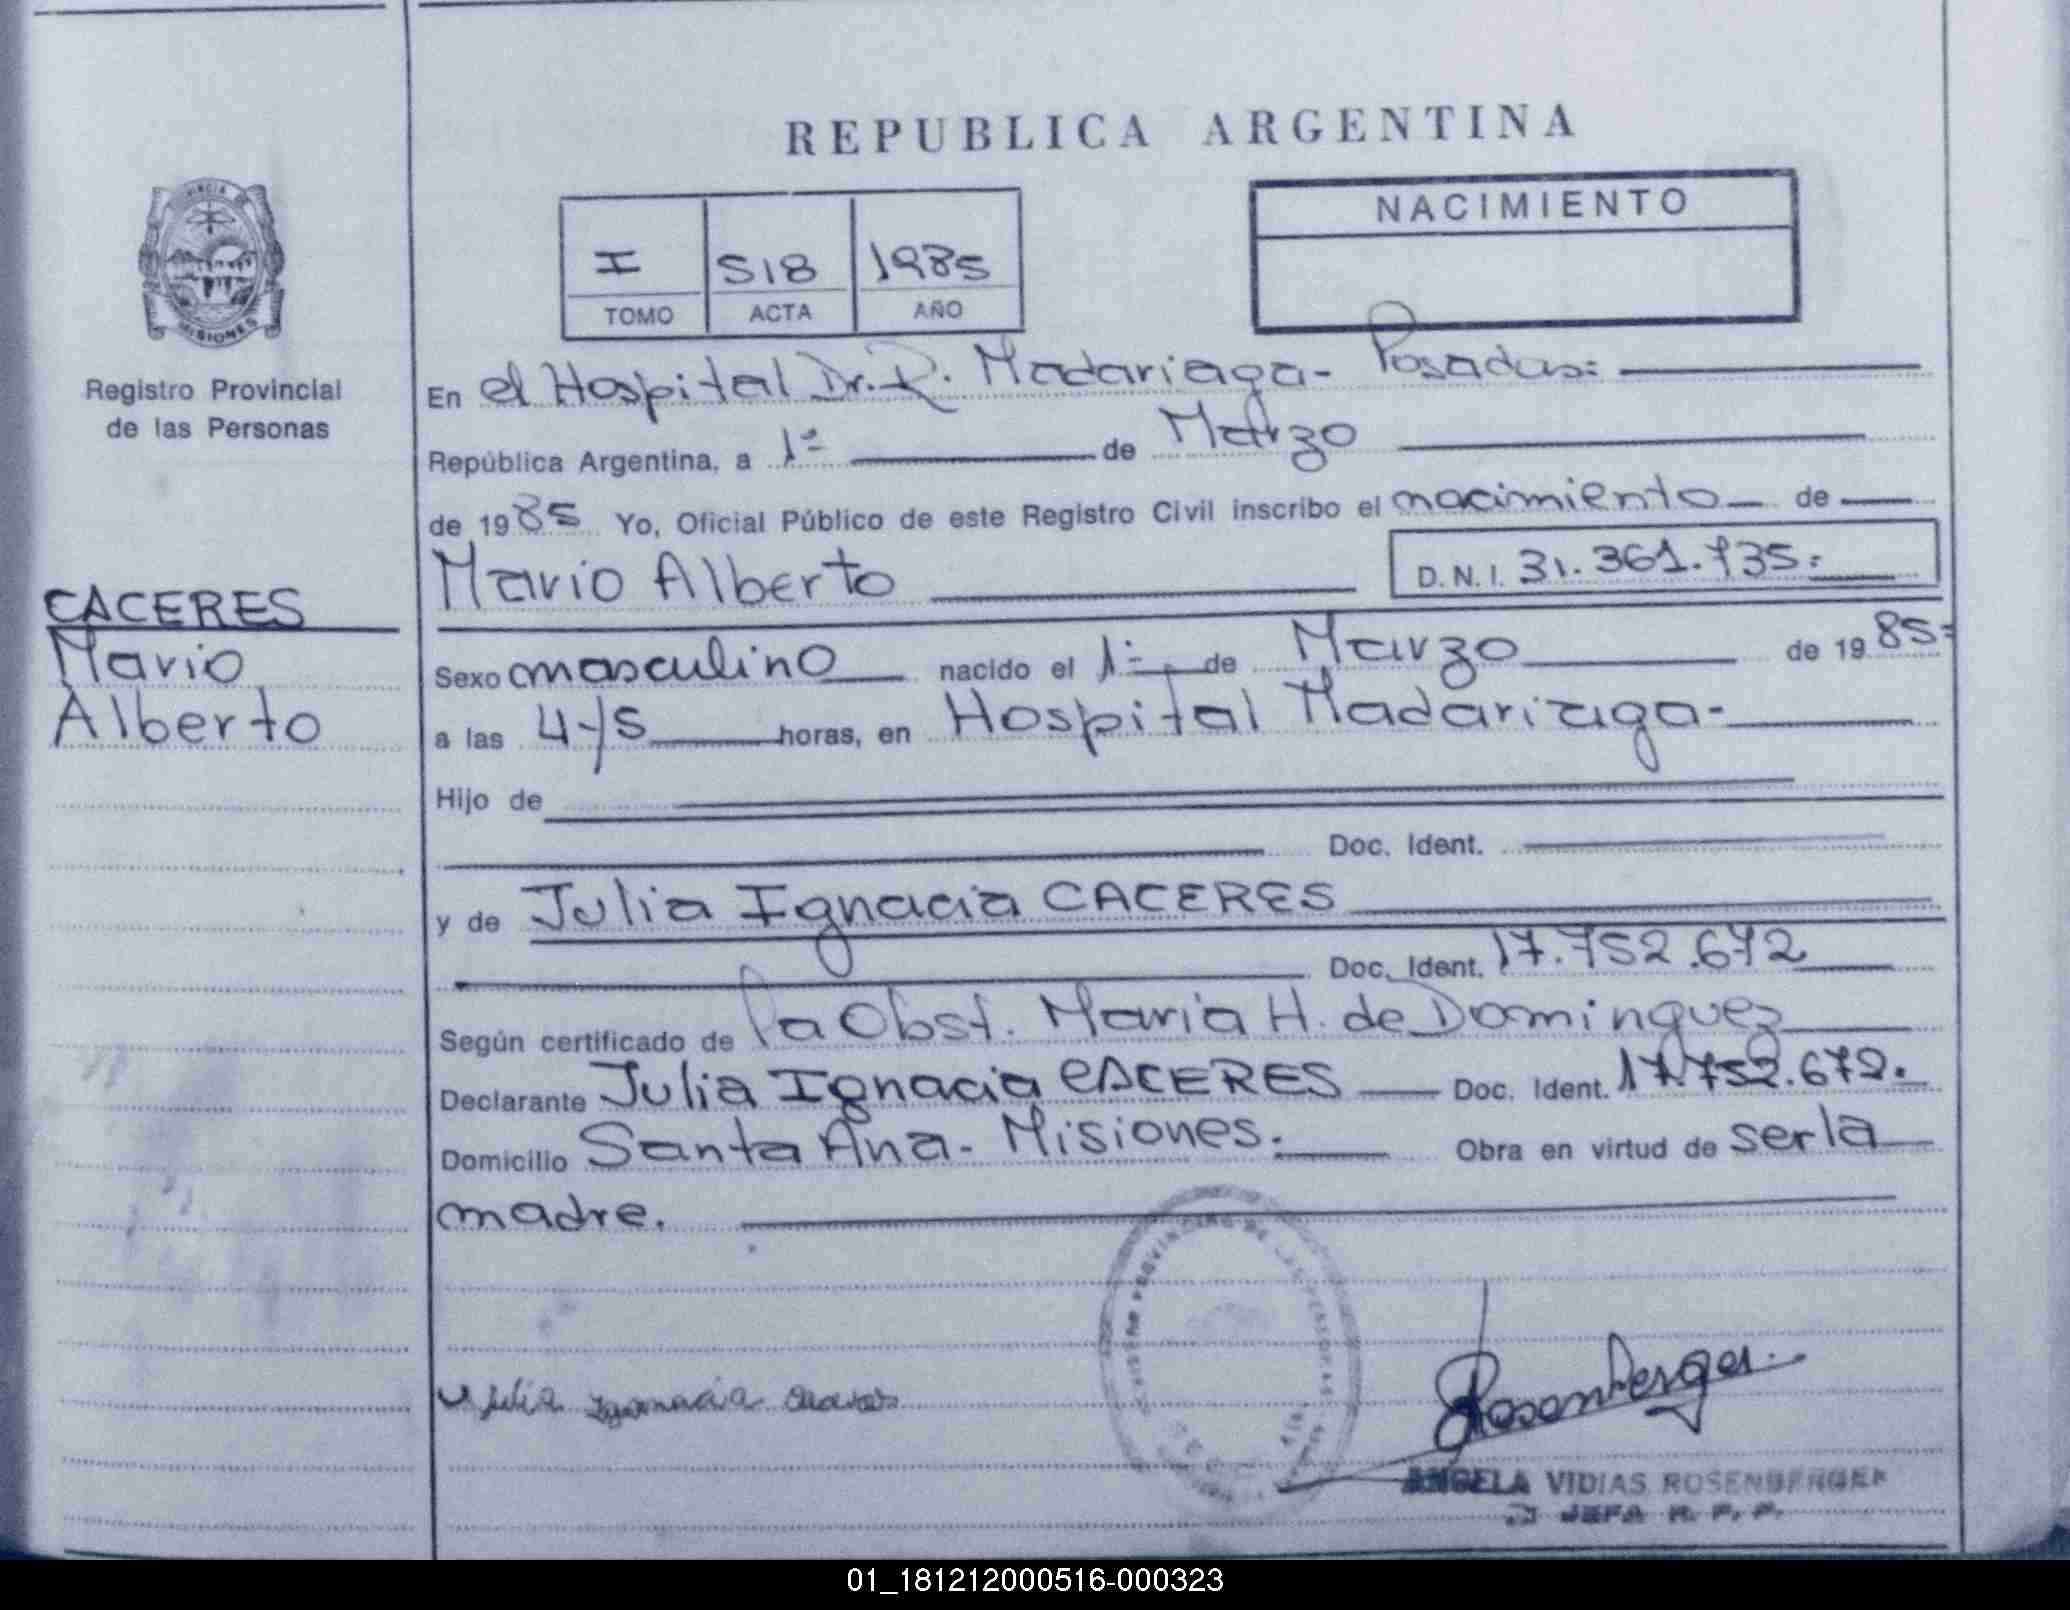 REPUBLICA ARGENTINA
NACIMIENTO
I 518 1985
TOMO ACTA AÑO
MISIONES
Registro Provincial
de las Personas
CACERES
Mario
Alberto
En el Hospital Dr. R. Madariaga- Posadas=
República Argentina, a 1º de Marzo
de 1985 Yo, Oficial Público de este Registro Civil inscribo el nacimiento de
Mario Alberto D.N.I. 31.361.735=
Sexo masculino nacido el 1º de Marzo de 1985=
a las 4-/5 horas, en Hospital Madariaga-
Hijo de
Doc. Ident.
y de Julia Ignacia CACERES
Doc. Ident. 17.752.672
Según certificado de la Obst. Maria H. de Dominguez
Declarante Julia Ignacia CACERES Doc. Ident. 17.752.672.
Domicilio Santa Ana- Misiones. Obra en virtud de ser la
madre.
Julia
Rosenberger
ANGELA VIDIAS ROSENBERGER
JEFA R. P. P.
01_181212000516-000323